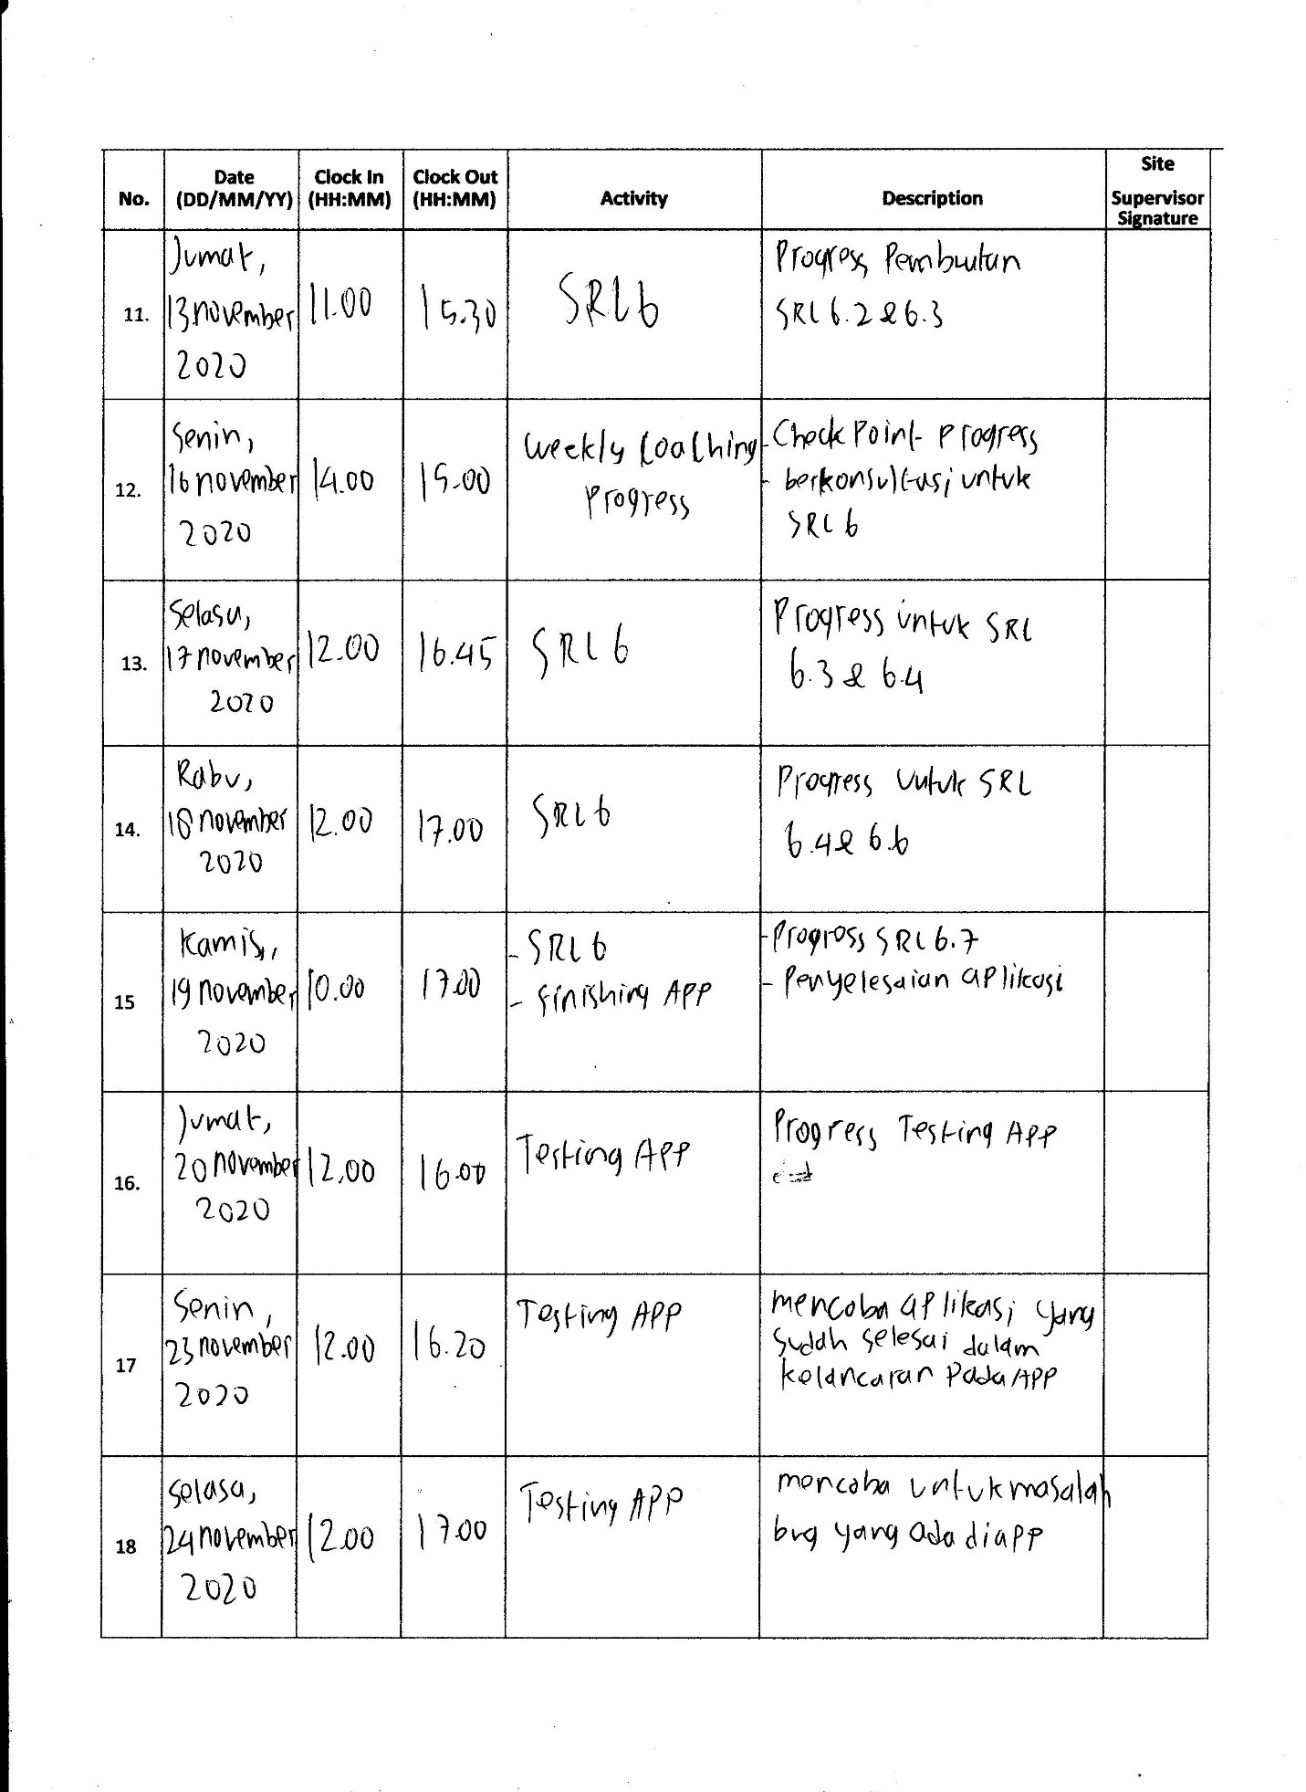 No. Date (DD/MM/YY) Clock In (HH:MM) Clock Out (HH:MM) Activity Description Site Supervisor Signature
11.
Jumat,
13 november
2020
11.00
15.30
SRL 6
Progress Pembuatan
SRL 6.2 & 6.3
12.
Senin,
16 november
2020
14.00
15.00
Weekly Coaching
Progress
- Check Point Progress
- berkonsultasi untuk
SRL 6
13.
Selasa,
17 november
2020
12.00
16.45
SRL 6
Progress untuk SRL
6.3 & 6.4
14.
Rabu,
18 november
2020
12.00
17.00
SRL 6
Progress untuk SRL
6.4 & 6.6
15
Kamis,
19 november
2020
10.00
17.00
- SRL 6
- finishing APP
- Progress SRL 6.7
- Penyelesaian aplikasi
16.
Jumat,
20 november
2020
12.00
16.00
Testing APP
Progress Testing APP
17
Senin,
23 november
2020
12.00
16.20
Testing APP
mencoba aplikasi yang
sudah selesai dalam
kelancaran Pada APP
18
Selasa,
24 november
2020
12.00
17.00
Testing APP
mencoba untuk masalah
bug yang ada di app